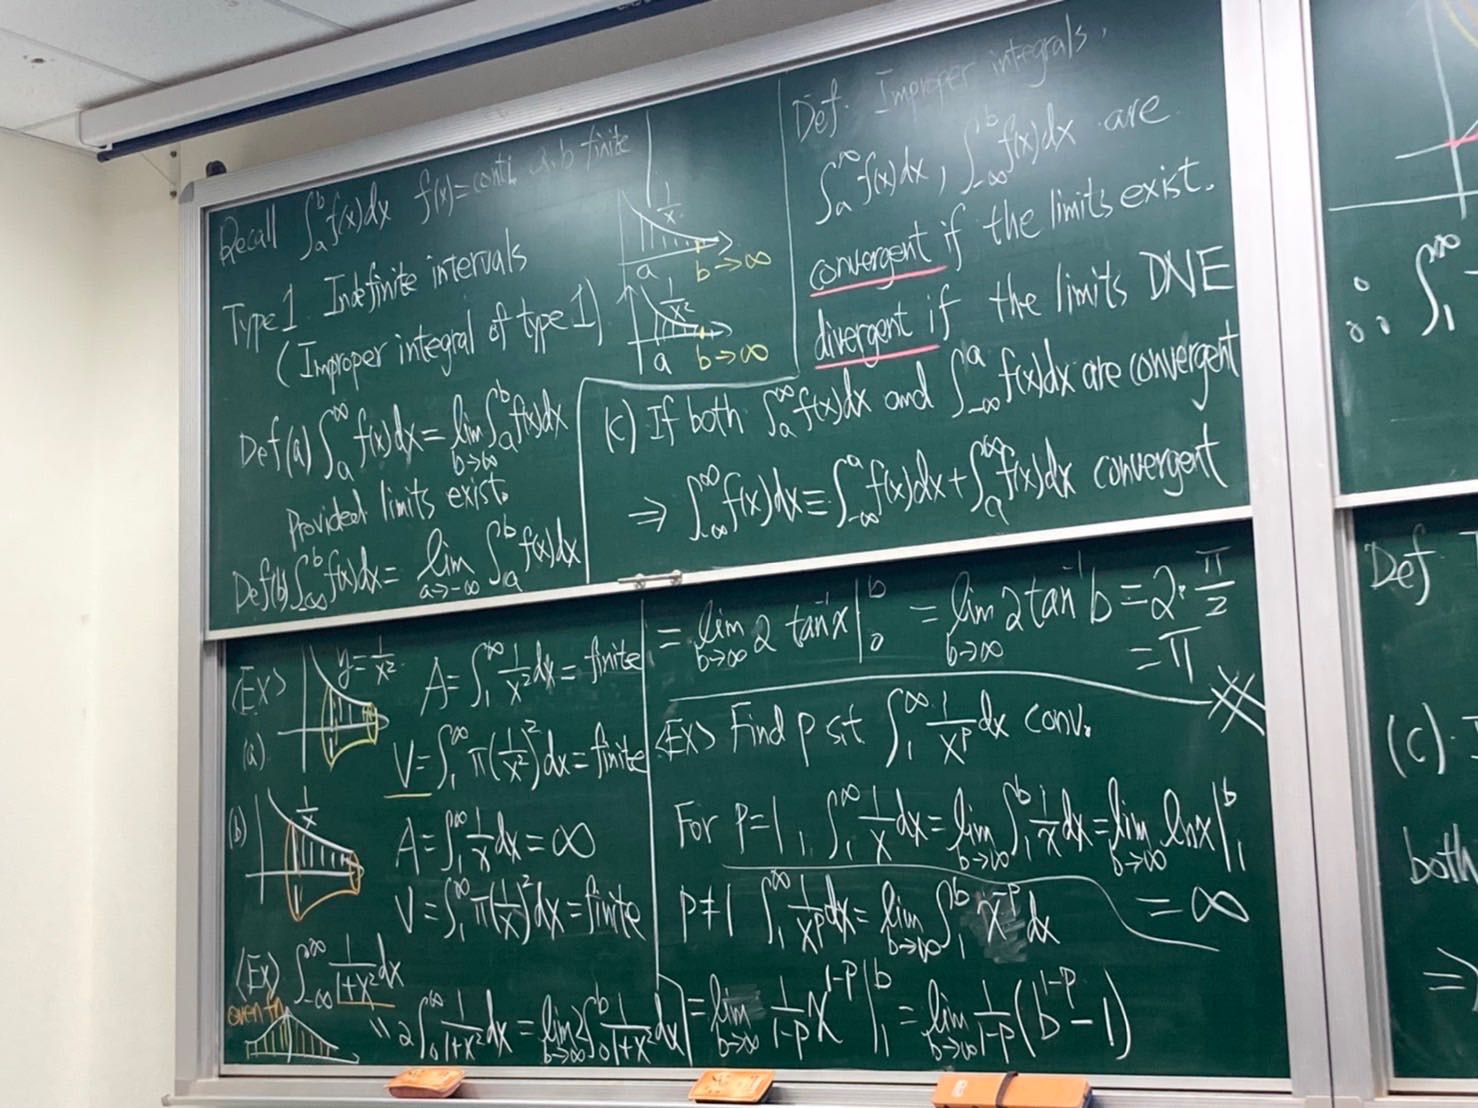 Recall ∫_a^b f(x)dx f(x)=conti a,b finite
Type 1 Indefinite intervals
(Improper integral of type 1)
1/x
a b→∞
1/x²
a b→∞
Def(a) ∫_a^∞ f(x)dx = lim_{b→∞} ∫_a^b f(x)dx
Provided limits exist.
Def(b) ∫_{-∞}^b f(x)dx = lim_{a→-∞} ∫_a^b f(x)dx
Def. Improper integrals,
∫_a^∞ f(x)dx, ∫_{-∞}^b f(x)dx are
convergent if the limits exist.
divergent if the limits DNE
(c) If both ∫_a^∞ f(x)dx and ∫_{-∞}^a f(x)dx are convergent
⇒ ∫_{-∞}^∞ f(x)dx ≡ ∫_{-∞}^a f(x)dx + ∫_a^∞ f(x)dx convergent
<Ex> y=1/x² A=∫_1^∞ 1/x² dx = finite
(a) V=∫_1^∞ π(1/x²)² dx = finite
(b) 1/x A=∫_1^∞ 1/x dx = ∞
V=∫_1^∞ π(1/x)² dx = finite
<Ex> ∫_{-∞}^∞ 1/(1+x²) dx
even fn
" 2∫_0^∞ 1/(1+x²) dx = lim_{b→∞} 2∫_0^b 1/(1+x²) dx
= lim_{b→∞} 2 tan⁻¹x |_0^b = lim_{b→∞} 2 tan⁻¹ b = 2·π/2
= π
<Ex> Find p s.t ∫_1^∞ 1/x^p dx conv.
For p=1, ∫_1^∞ 1/x dx = lim_{b→∞} ∫_1^b 1/x dx = lim_{b→∞} ln x |_1^b
= ∞
p≠1 ∫_1^∞ 1/x^p dx = lim_{b→∞} ∫_1^b x^{-p} dx
= lim_{b→∞} 1/(1-p) x^{1-p} |_1^b = lim_{b→∞} 1/(1-p) (b^{1-p} - 1)
∴ ∫_1^∞
Def
(c)
both
⇒